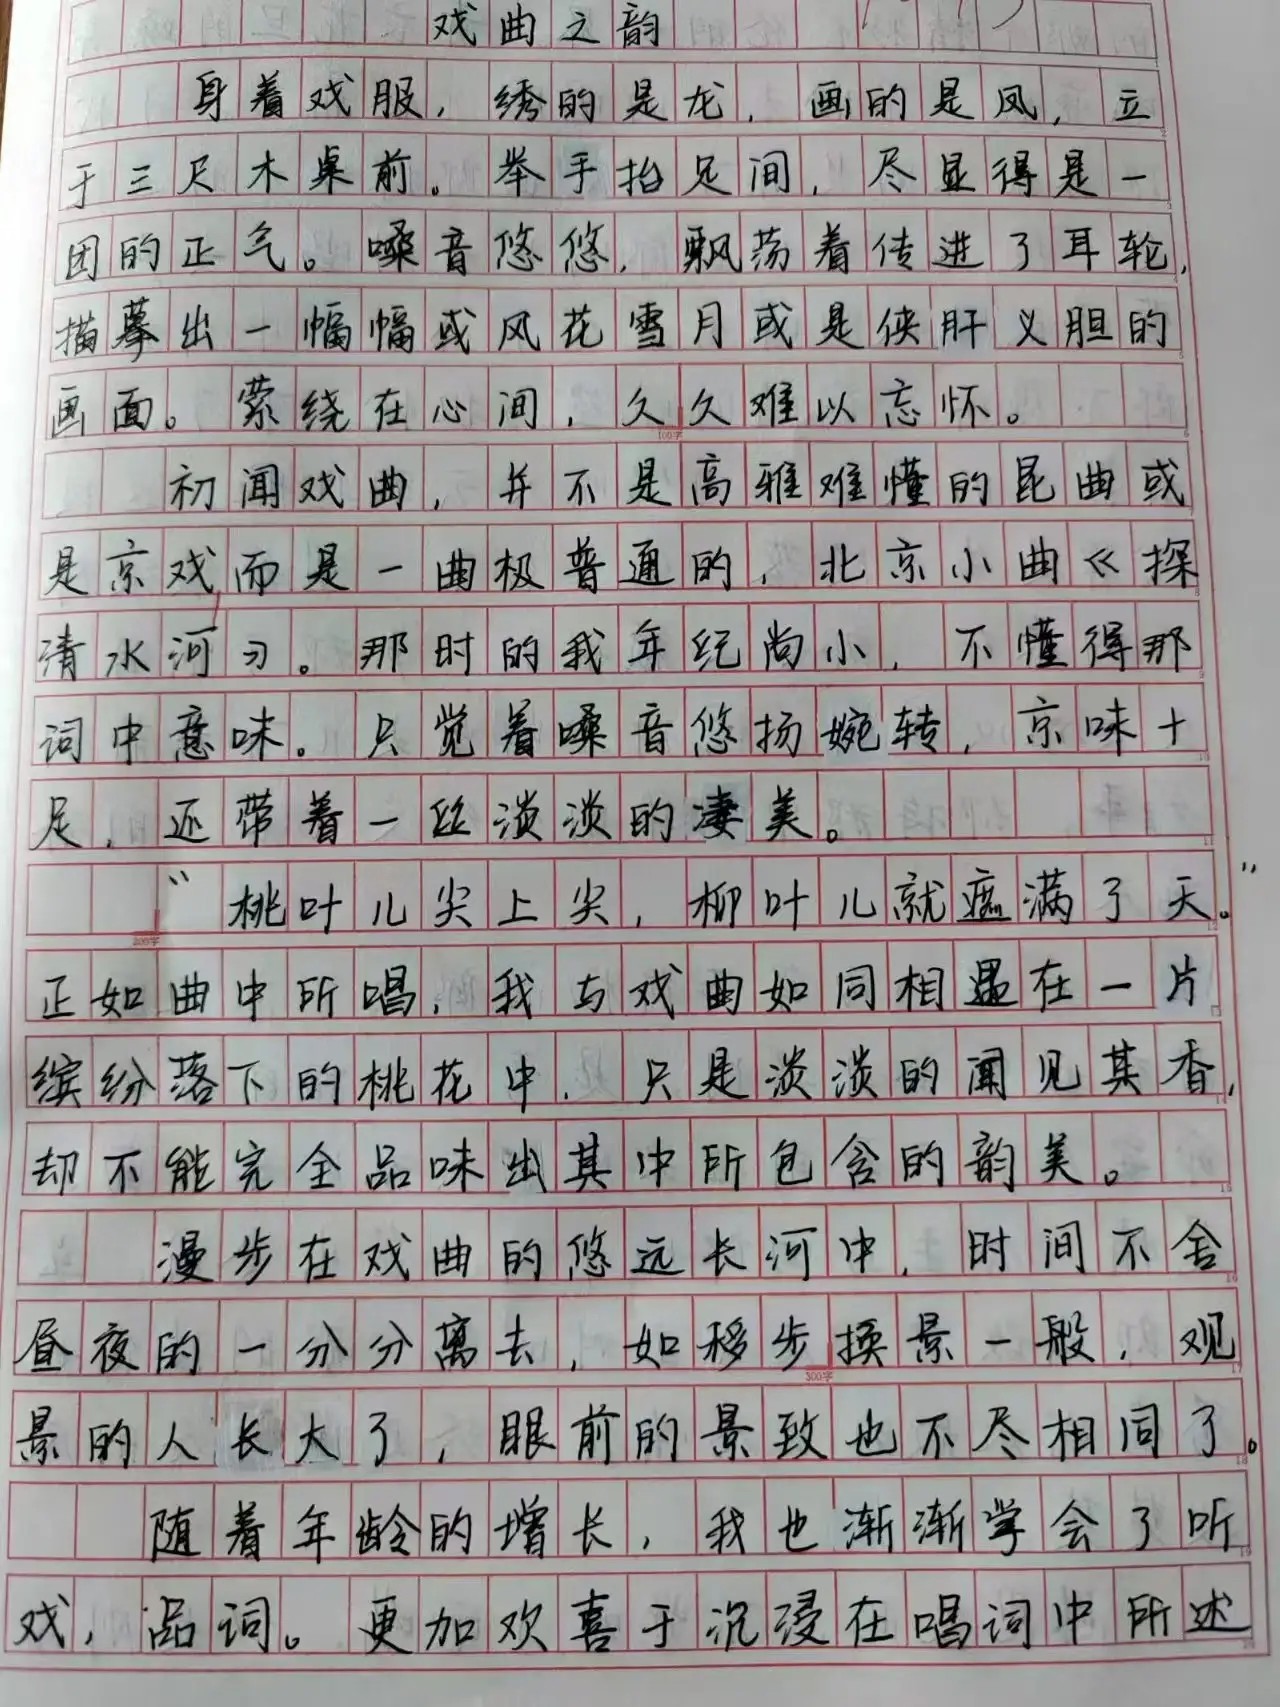 戏曲之韵
身着戏服，绣的是龙，画的是凤，立
于三尺木桌前。举手抬足间，尽显得是一
团的正气。嗓音悠悠，飘荡着传进了耳轮，
描摹出一幅幅或风花雪月或是侠肝义胆的
画面。萦绕在心间，久久难以忘怀。
100字
初闻戏曲，并不是高雅难懂的昆曲或
是京戏而是一曲极普通的，北京小曲《探
清水河》。那时的我年纪尚小，不懂得那
词中意味。只觉着嗓音悠扬婉转，京味十
足，还带着一丝淡淡的凄美。
“桃叶儿尖上尖，柳叶儿就遮满了天。”
200字
正如曲中所唱，我与戏曲如同相遇在一片
缤纷落下的桃花中，只是淡淡的闻见其香，
却不能完全品味出其中所包含的韵美。
漫步在戏曲的悠远长河中，时间不舍
昼夜的一分分离去，如移步换景一般，观
300字
景的人长大了，眼前的景致也不尽相同了。
随着年龄的增长，我也渐渐学会了听
戏，品词。更加欢喜于沉浸在唱词中所述